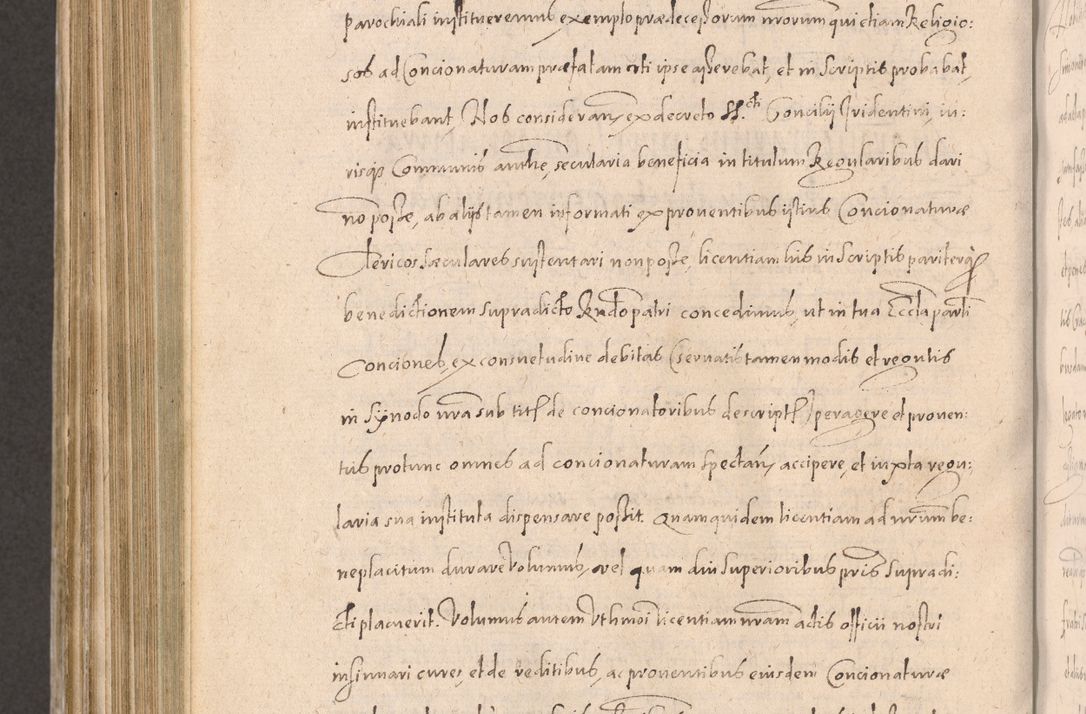 parochiali institueremus exemplo praedecessorum nrorum qui etiam Religio:
sos ad Concionaturam praefatam uti ipse asserebat, et in Scriptis probabat,
instituebant, Nos consideran, ex decreto SS.cti Concilij Tridentini, iu:
risque Communis authe, secularia beneficia in titulum Regularibus dari
no posse, ab alijs tamen informati ex proventibus istius Concionaturae
Clericos saeculares sustentari non posse, licentiam his in Scriptis pariterq
benedictionem supradicto Rndo patri concedimus, ut in tua Eccla parli
Conciones, ex consuetudine debitas (servatis tamen modis et regulis
in Synodo nra sub titl de concionatoribus descriptl) peragere et proven:
tus protunc omnes ad concionaturam spectan, accipere, et iuxta regu:
laria sua instituta dispensare possit. Quamquidem licentiam ad nrum be:
neplacitum durare volumus, vel quam diu Superioribus pris Supradi:
cti placuerit. Volumus autem Vthmoi licentiam nram actis officii nostri
insinuari cures, et de reditibus, ac proventibus eiusdem Concionaturae